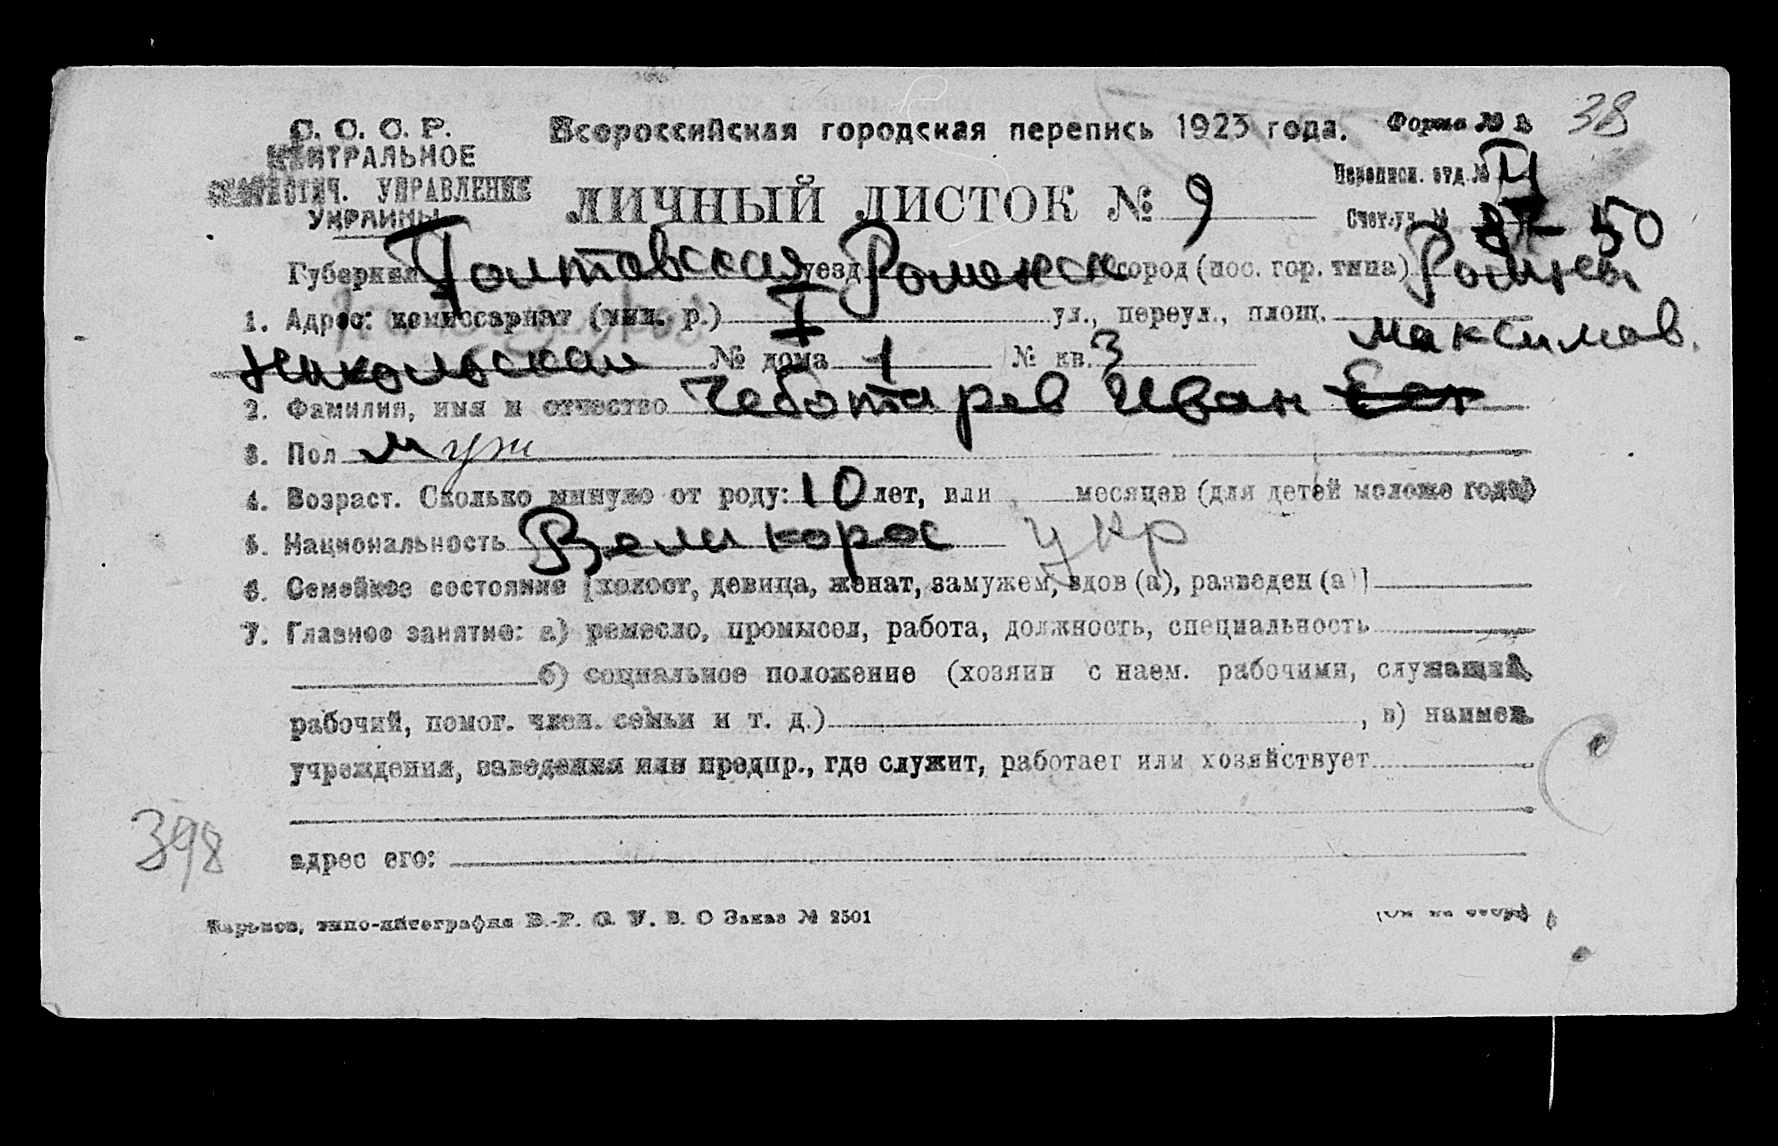 С. С. С. Р.
ЦЕНТРАЛЬНОЕ
СТАТИСТИЧ. УПРАВЛЕНИЕ
УКРАИНЫ
Всероссийская городская перепись 1923 года.
Форма № 2
38
ЛИЧНЫЙ ЛИСТОК № 9
Переписн. отд. №
Счет. уч. № 50
Губерния Полтавская уезд Роменск город (пос. гор. типа) Ромны
1. Адрес: комиссариат (мил. р.) I ул., переул., площ.
Никольская № дома 1 № кв. 3
Максимов.
2. Фамилия, имя и отчество Чеботарев Иван
3. Пол муж
4. Возраст. Сколько минуло от роду: 10 лет, или месяцев (для детей моложе года)
5. Национальность Великорос укр
6. Семейное состояние [холост, девица, женат, замужем, вдов (а), разведен (а)]
7. Главное занятие: а) ремесло, промысел, работа, должность, специальность
б) социальное положение (хозяин с наем. рабочими, служащий,
рабочий, помог. член. семьи и т. д.) , в) наимен.
учреждения, заведения или предпр., где служит, работает или хозяйствует
адрес его:
398
Харьков, типо-литография В.-Р. С. У. В. О Заказ № 2501